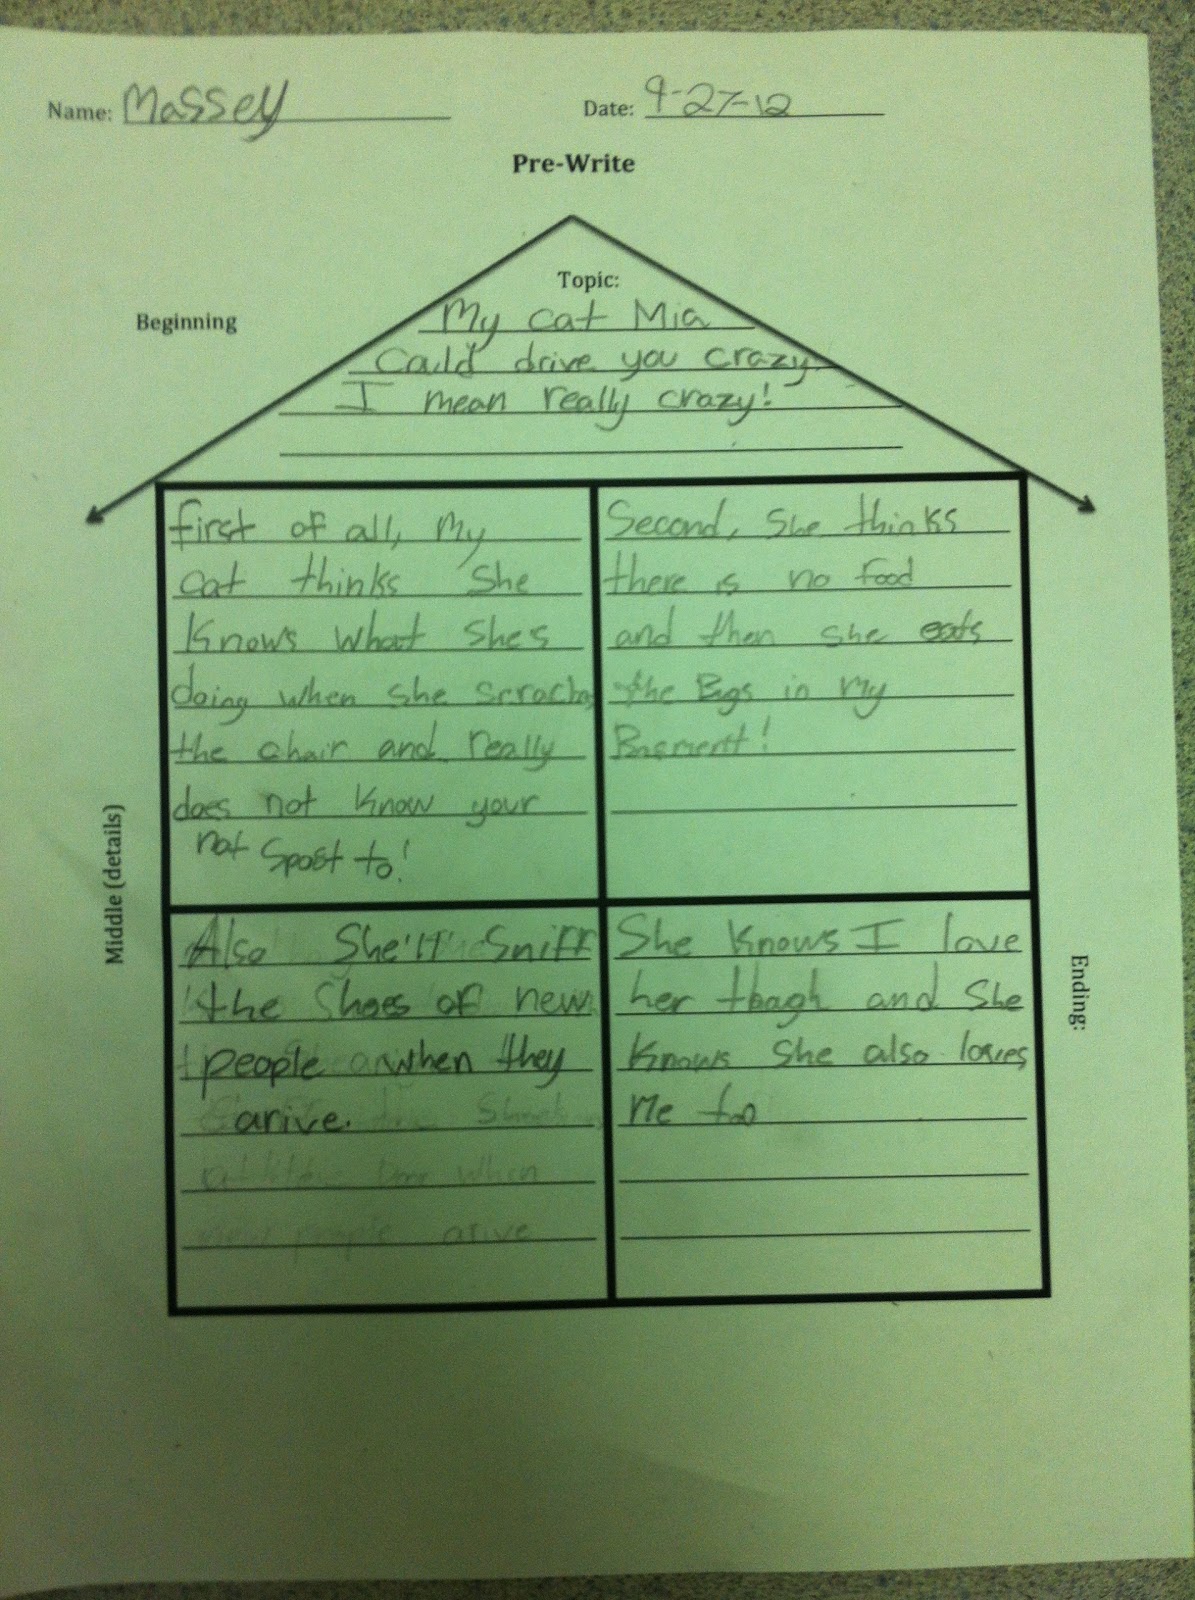 Name: Massey Date: 9-27-12
Pre-Write
Topic:
Beginning
My cat Mia
Could drive you crazy!
I mean really crazy!
first of all, My
cat thinks She
Knows what she's
doing when she scrachs
the chair and really
does not know your
not Spost to!
Second, She thinks
there is no food
and then she eats
the Bugs in my
Basment!
Middle (details)
Also She'll Sniff
the Shoes of new
people when they
arive.
when
new people arive
She Knows I love
her thogh and She
Knows She also loves
Me too
Ending: